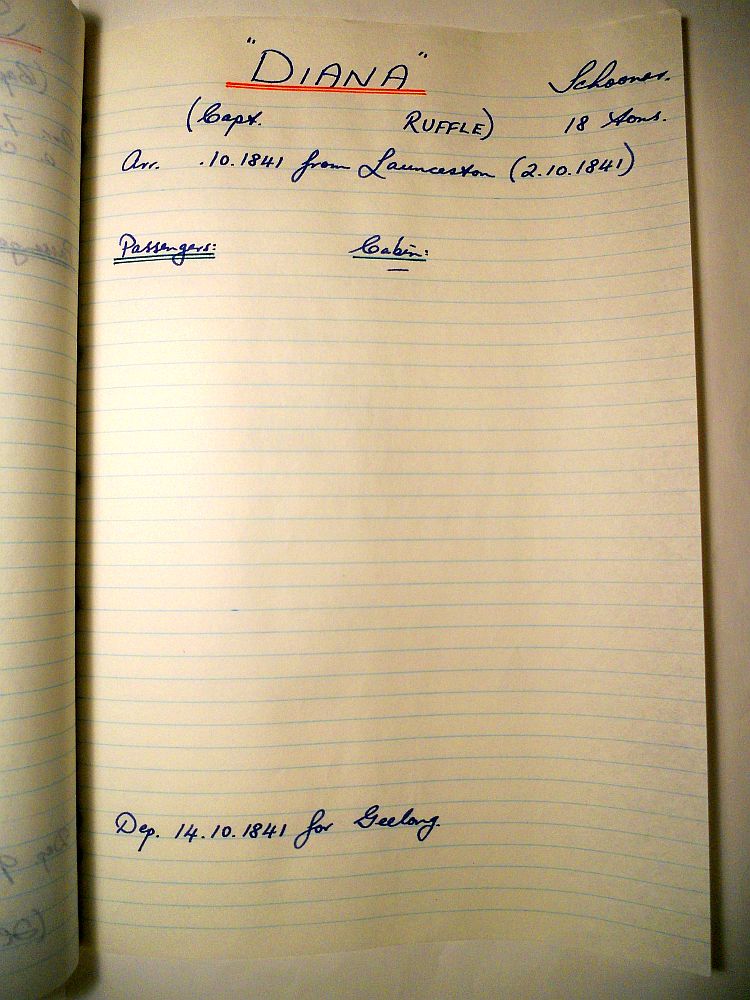 "DIANA" Schooner.
(Capt. RUFFLE) 18 tons.
Arr. .10.1841 from Launceston (2.10.1841)
Passengers: Cabin:
—
Dep. 14.10.1841 for Geelong.